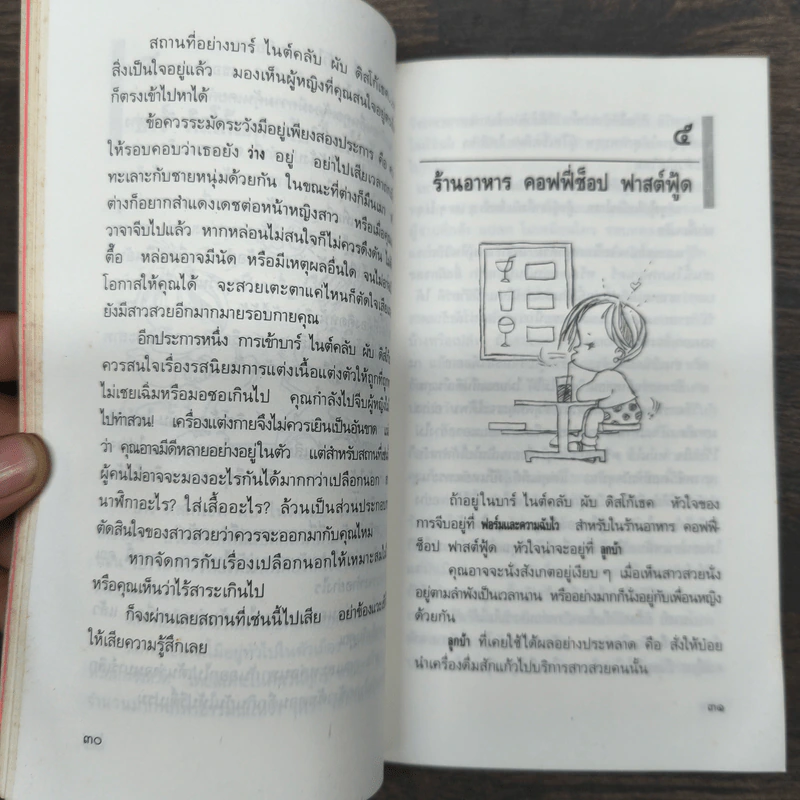 สถานที่อย่างบาร์ ไนต์คลับ ผับ ดิสโก้เธค
สิ่งเป็นใจอยู่แล้ว มองเห็นผู้หญิงที่คุณสนใจอยู่
ก็ตรงเข้าไปหาได้
ข้อควรระมัดระวังมีอยู่เพียงสองประการ คือ
ให้รอบคอบว่าเธอยัง ว่าง อยู่ อย่าไปเสียเวลา
ทะเลาะกับชายหนุ่มด้วยกัน ในขณะที่ต่างก็มึนเมา
ต่างก็อยากสำแดงเดชต่อหน้าหญิงสาว หรือเมื่อ
วาจาจีบไปแล้ว หากหล่อนไม่สนใจก็ไม่ควรดึงดัน
ตื๊อ หล่อนอาจมีนัด หรือมีเหตุผลอื่นใด จนไม่
โอกาสให้คุณได้ จะสวยเตะตาแค่ไหนก็ตัดใจเสีย
ยังมีสาวสวยอีกมากมายรอบกายคุณ
อีกประการหนึ่ง การเข้าบาร์ ไนต์คลับ ผับ ดิสโก้
ควรสนใจเรื่องรสนิยมการแต่งเนื้อแต่งตัวให้ถูกที่
ไม่เชยเฉิ่มหรือมอซอเกินไป คุณกำลังไปจีบผู้หญิง
ไปทำสวน! เครื่องแต่งกายจึงไม่ควรเยินเป็นอันขาด
ว่า คุณอาจมีดีหลายอย่างอยู่ในตัว แต่สำหรับสถานที่เช่น
ผู้คนไม่อาจจะมองอะไรกันได้มากกว่าเปลือกนอก
นาฬิกาอะไร? ใส่เสื้ออะไร? ล้วนเป็นส่วนประกอบ
ตัดสินใจของสาวสวยว่าควรจะออกมากับคุณไหม
หากจัดการกับเรื่องเปลือกนอกให้เหมาะสม
หรือคุณเห็นว่าไร้สาระเกินไป
ก็จงผ่านเลยสถานที่เช่นนี้ไปเสีย อย่าข้องแวะ
ให้เสียความรู้สึกเลย
๓๐
๕
ร้านอาหาร คอฟฟี่ช็อป ฟาสต์ฟู้ด
ถ้าอยู่ในบาร์ ไนต์คลับ ผับ ดิสโก้เธค หัวใจของ
การจีบอยู่ที่ ฟอร์มและความฉับไว สำหรับในร้านอาหาร คอฟฟี่-
ช็อป ฟาสต์ฟู้ด หัวใจน่าจะอยู่ที่ ลูกบ้า
คุณอาจจะนั่งสังเกตอยู่เงียบ ๆ เมื่อเห็นสาวสวยนั่ง
อยู่ตามลำพังเป็นเวลานาน หรืออย่างมากก็นั่งอยู่กับเพื่อนหญิง
ด้วยกัน
ลูกบ้า ที่เคยใช้ได้ผลอย่างประหลาด คือ สั่งให้บ๋อย
นำเครื่องดื่มสักแก้วไปบริการสาวสวยคนนั้น
๓๑